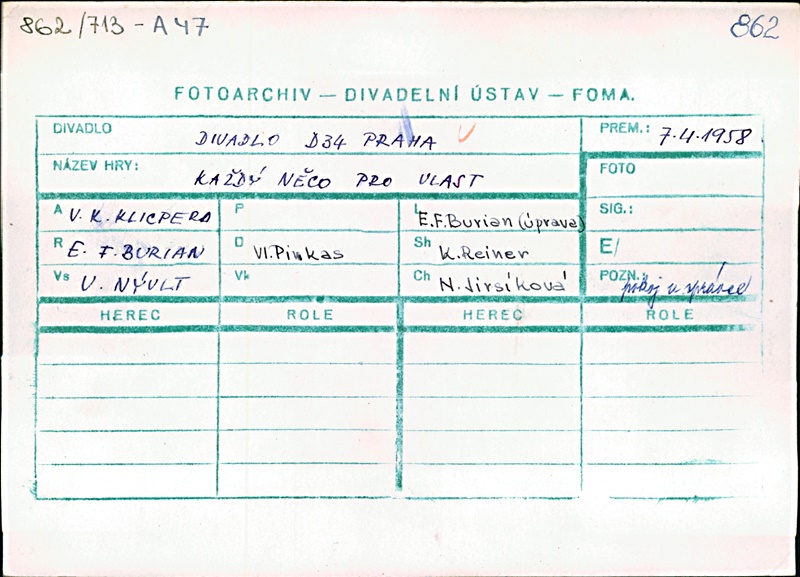 862/713 - A 47
862
FOTOARCHIV — DIVADELNÍ ÚSTAV — FOMA.
DIVADLO DIVADLO D34 PRAHA
PREM.: 7.4.1958
NÁZEV HRY: KAŽDÝ NĚCO PRO VLAST
FOTO
A V. K. KLICPERA P L E.F.Burian (úprava) SIG.:
R E. F. BURIAN D Vl. Pinkas Sh K. Reiner E/
Vs V. NÝVLT Vk Ch N. Jirsíková POZN.: pokoj u správce
HEREC ROLE HEREC ROLE